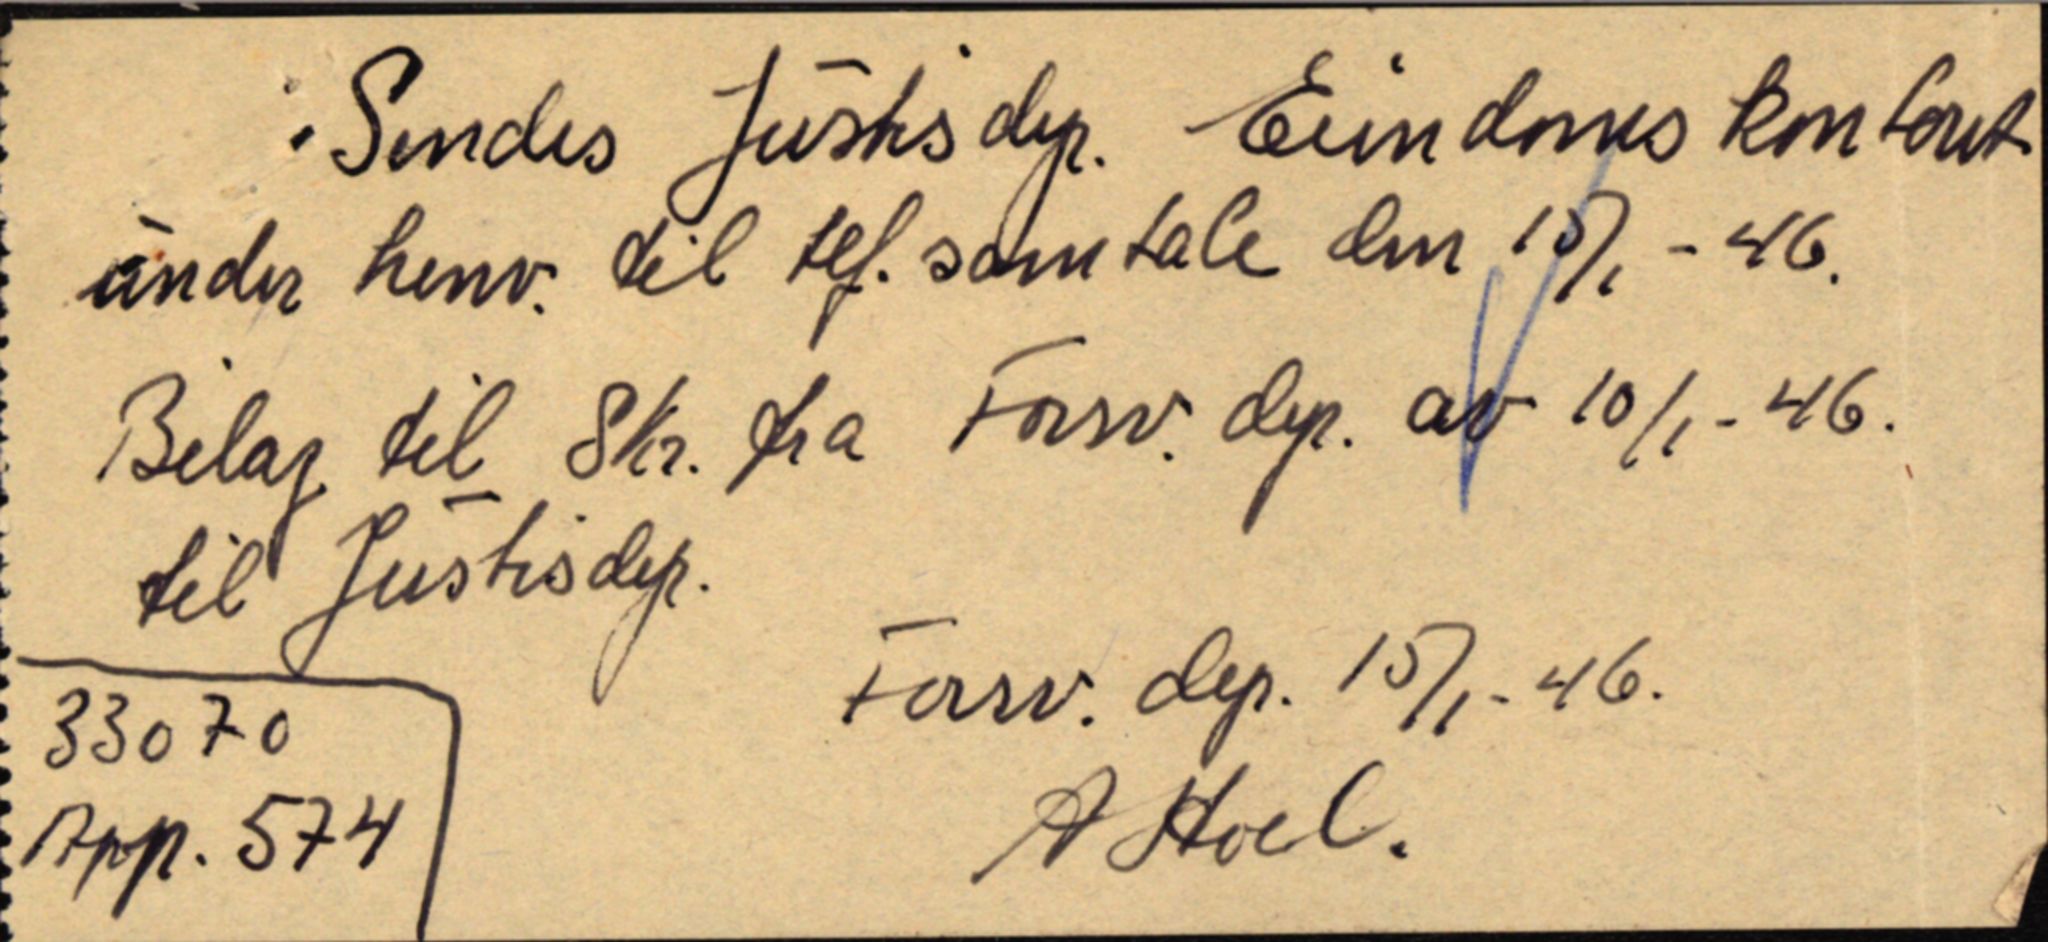 Sendes Justisdep. Eiendomskontoret
under henv. til tlf. samtale den 15/1-46.
Bilag til Skr. fra Forsv. dep. av 10/1-46.
til Justisdep.
Forsv. dep. 15/1-46.
A Hoel.
33070
App. 574